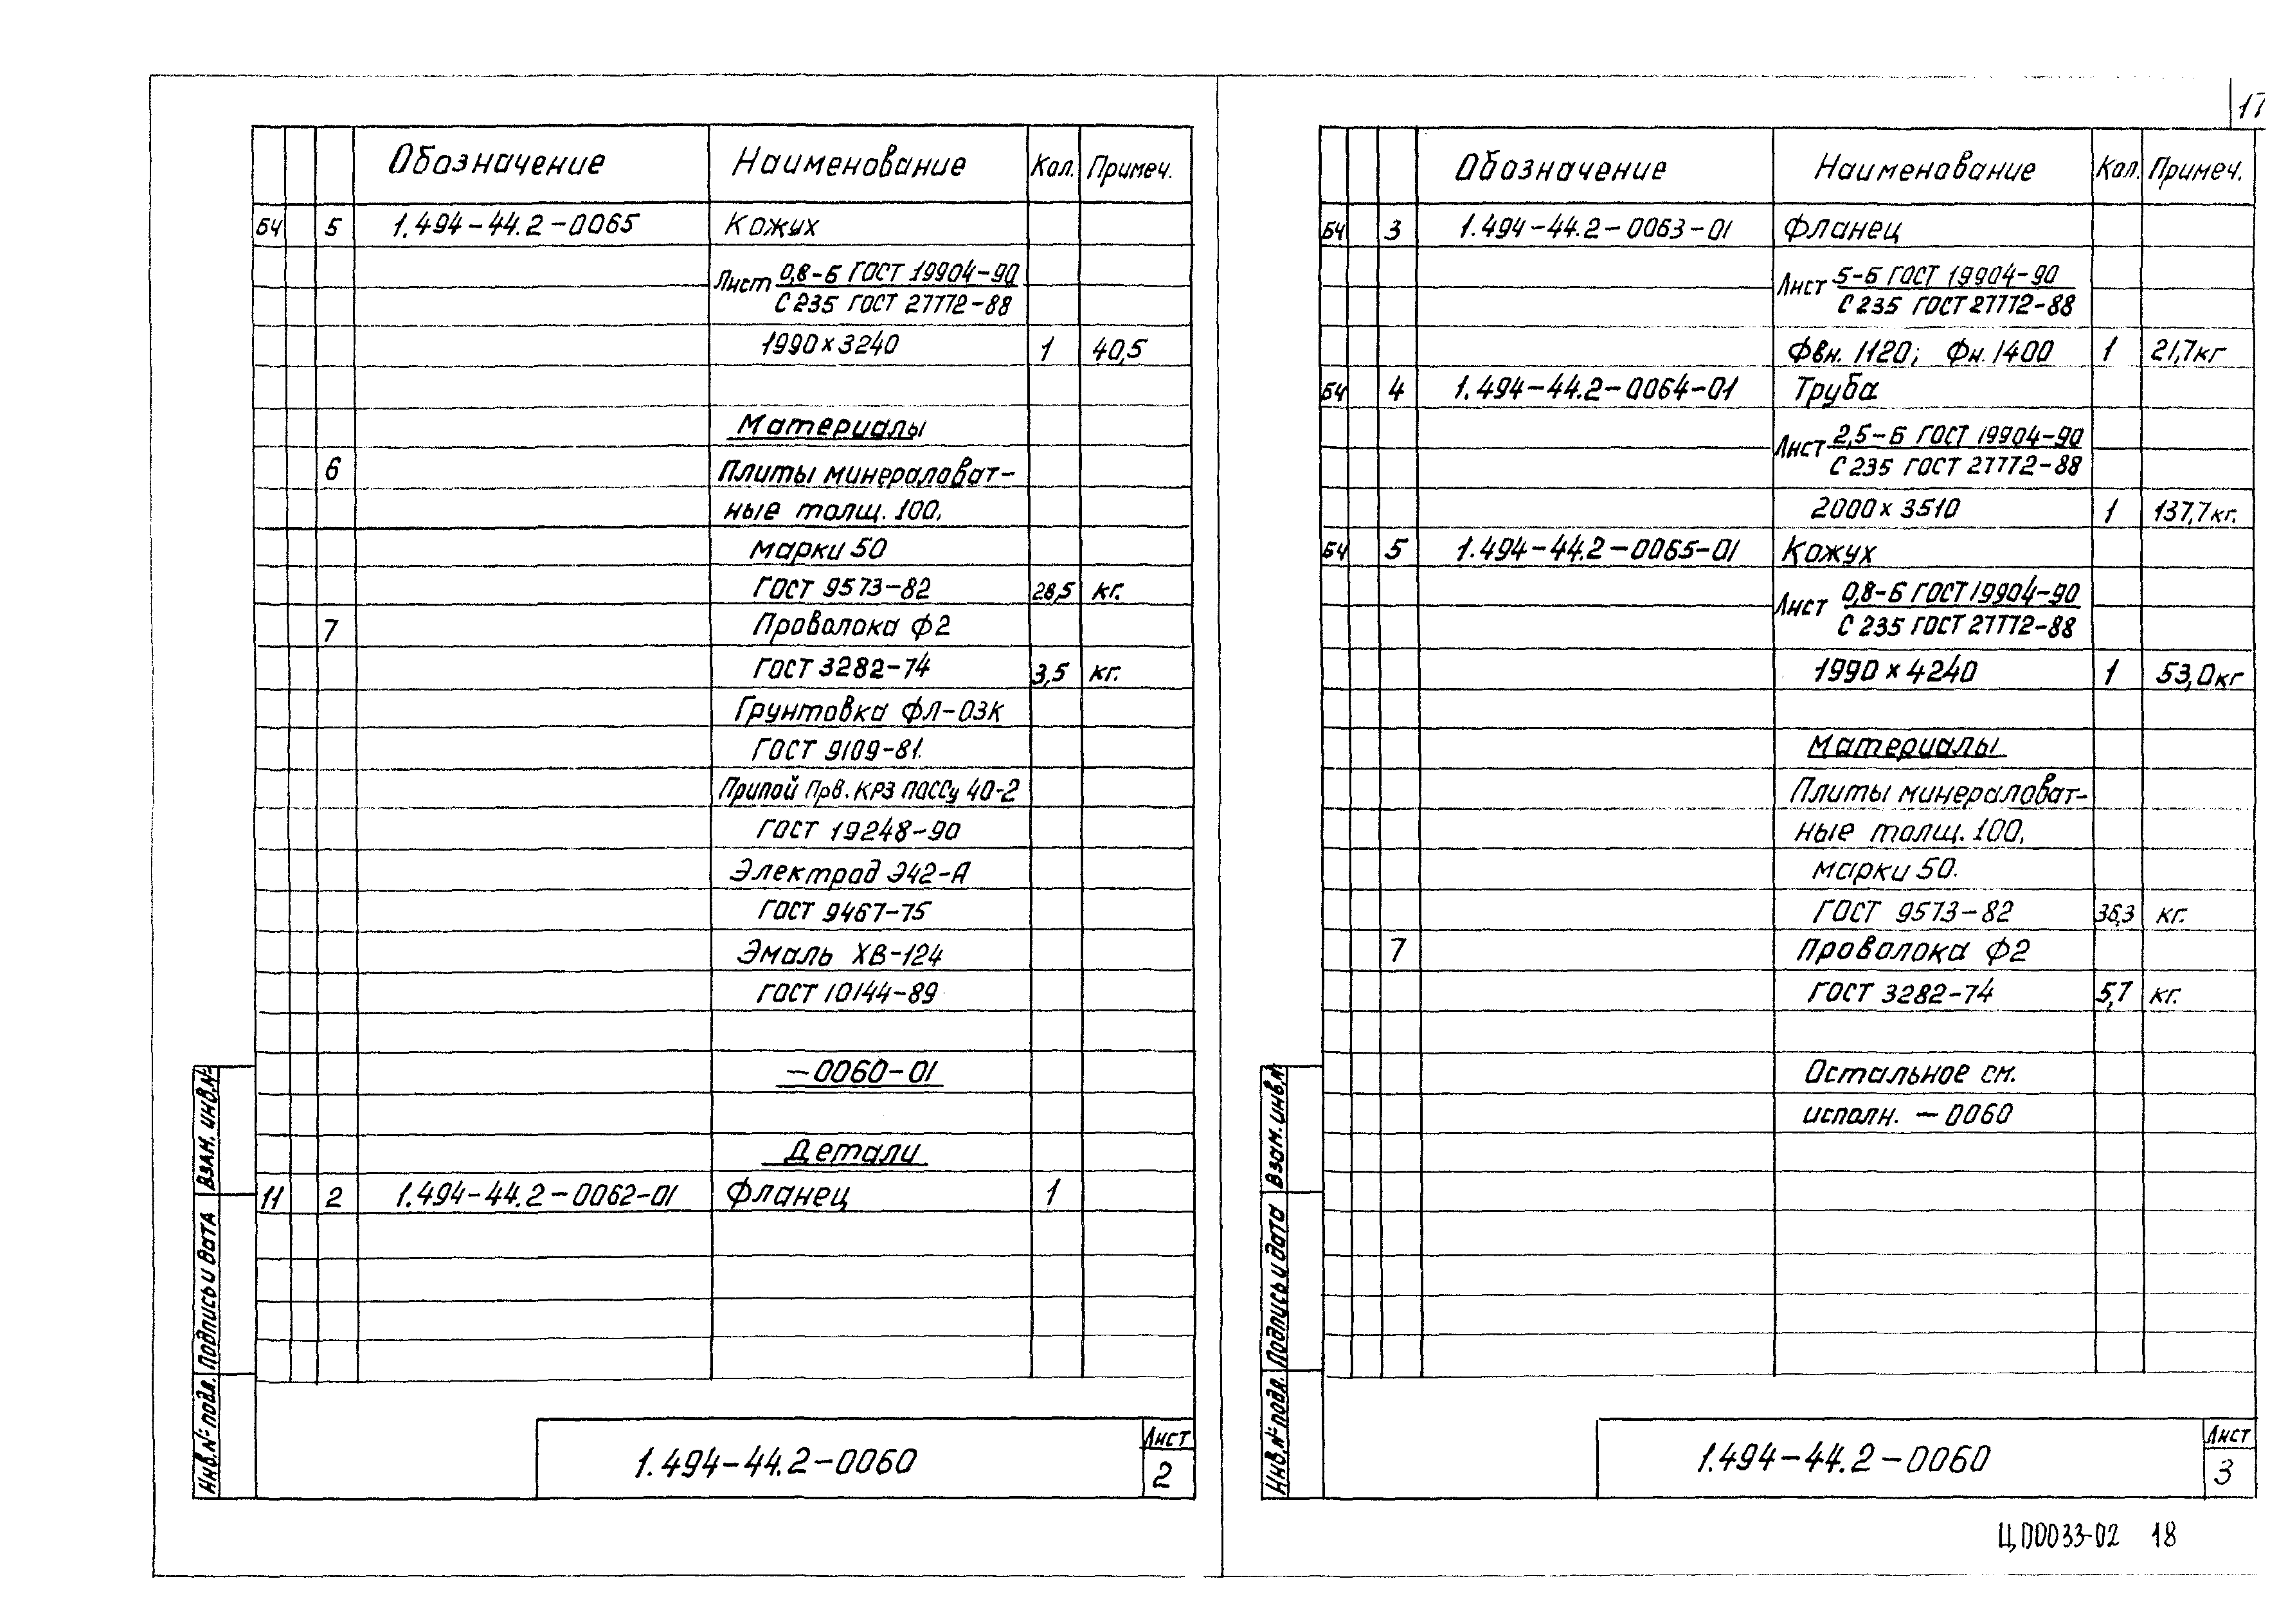 17
Обозначение Наименование Кол. Примеч.
БЧ 5 1.494-44.2-0065 Кожух
Лист 0,8-Б ГОСТ 19904-90
С 235 ГОСТ 27772-88
1990×3240 1 40,5
Материалы
6 Плиты минераловат-
ные толщ. 100,
марки 50
ГОСТ 9573-82 28,5 кг.
7 Проволока Ф2
ГОСТ 3282-74 3,5 кг.
Грунтовка ФЛ-03К
ГОСТ 9109-81.
Припой Прв. КР3 ПОССу 40-2
ГОСТ 19248-90
Электрод Э42-А
ГОСТ 9467-75
Эмаль ХВ-124
ГОСТ 10144-89
-0060-01
Детали
11 2 1.494-44.2-0062-01 Фланец 1
Взам. инв.№
Подпись и дата
Инв.№ подл.
1.494-44.2-0060
Лист
2
Обозначение Наименование Кол. Примеч.
БЧ 3 1.494-44.2-0063-01 Фланец
Лист 5-Б ГОСТ 19904-90
С 235 ГОСТ 27772-88
Фвн. 1120; Фн. 1400 1 21,7кг
БЧ 4 1.494-44.2-0064-01 Труба
Лист 2,5-Б ГОСТ 19904-90
С 235 ГОСТ 27772-88
2000×3510 1 137,7кг.
БЧ 5 1.494-44.2-0065-01 Кожух
Лист 0,8-Б ГОСТ 19904-90
С 235 ГОСТ 27772-88
1990×4240 1 53,0кг
Материалы
Плиты минераловат-
ные толщ. 100,
марки 50.
ГОСТ 9573-82 36,3 кг.
7 Проволока Ф2
ГОСТ 3282-74 5,7 кг.
Остальное см.
исполн. -0060
Взам. инв.№
Подпись и дата
Инв.№ подл.
1.494-44.2-0060
Лист
3
Ц00033-02 18